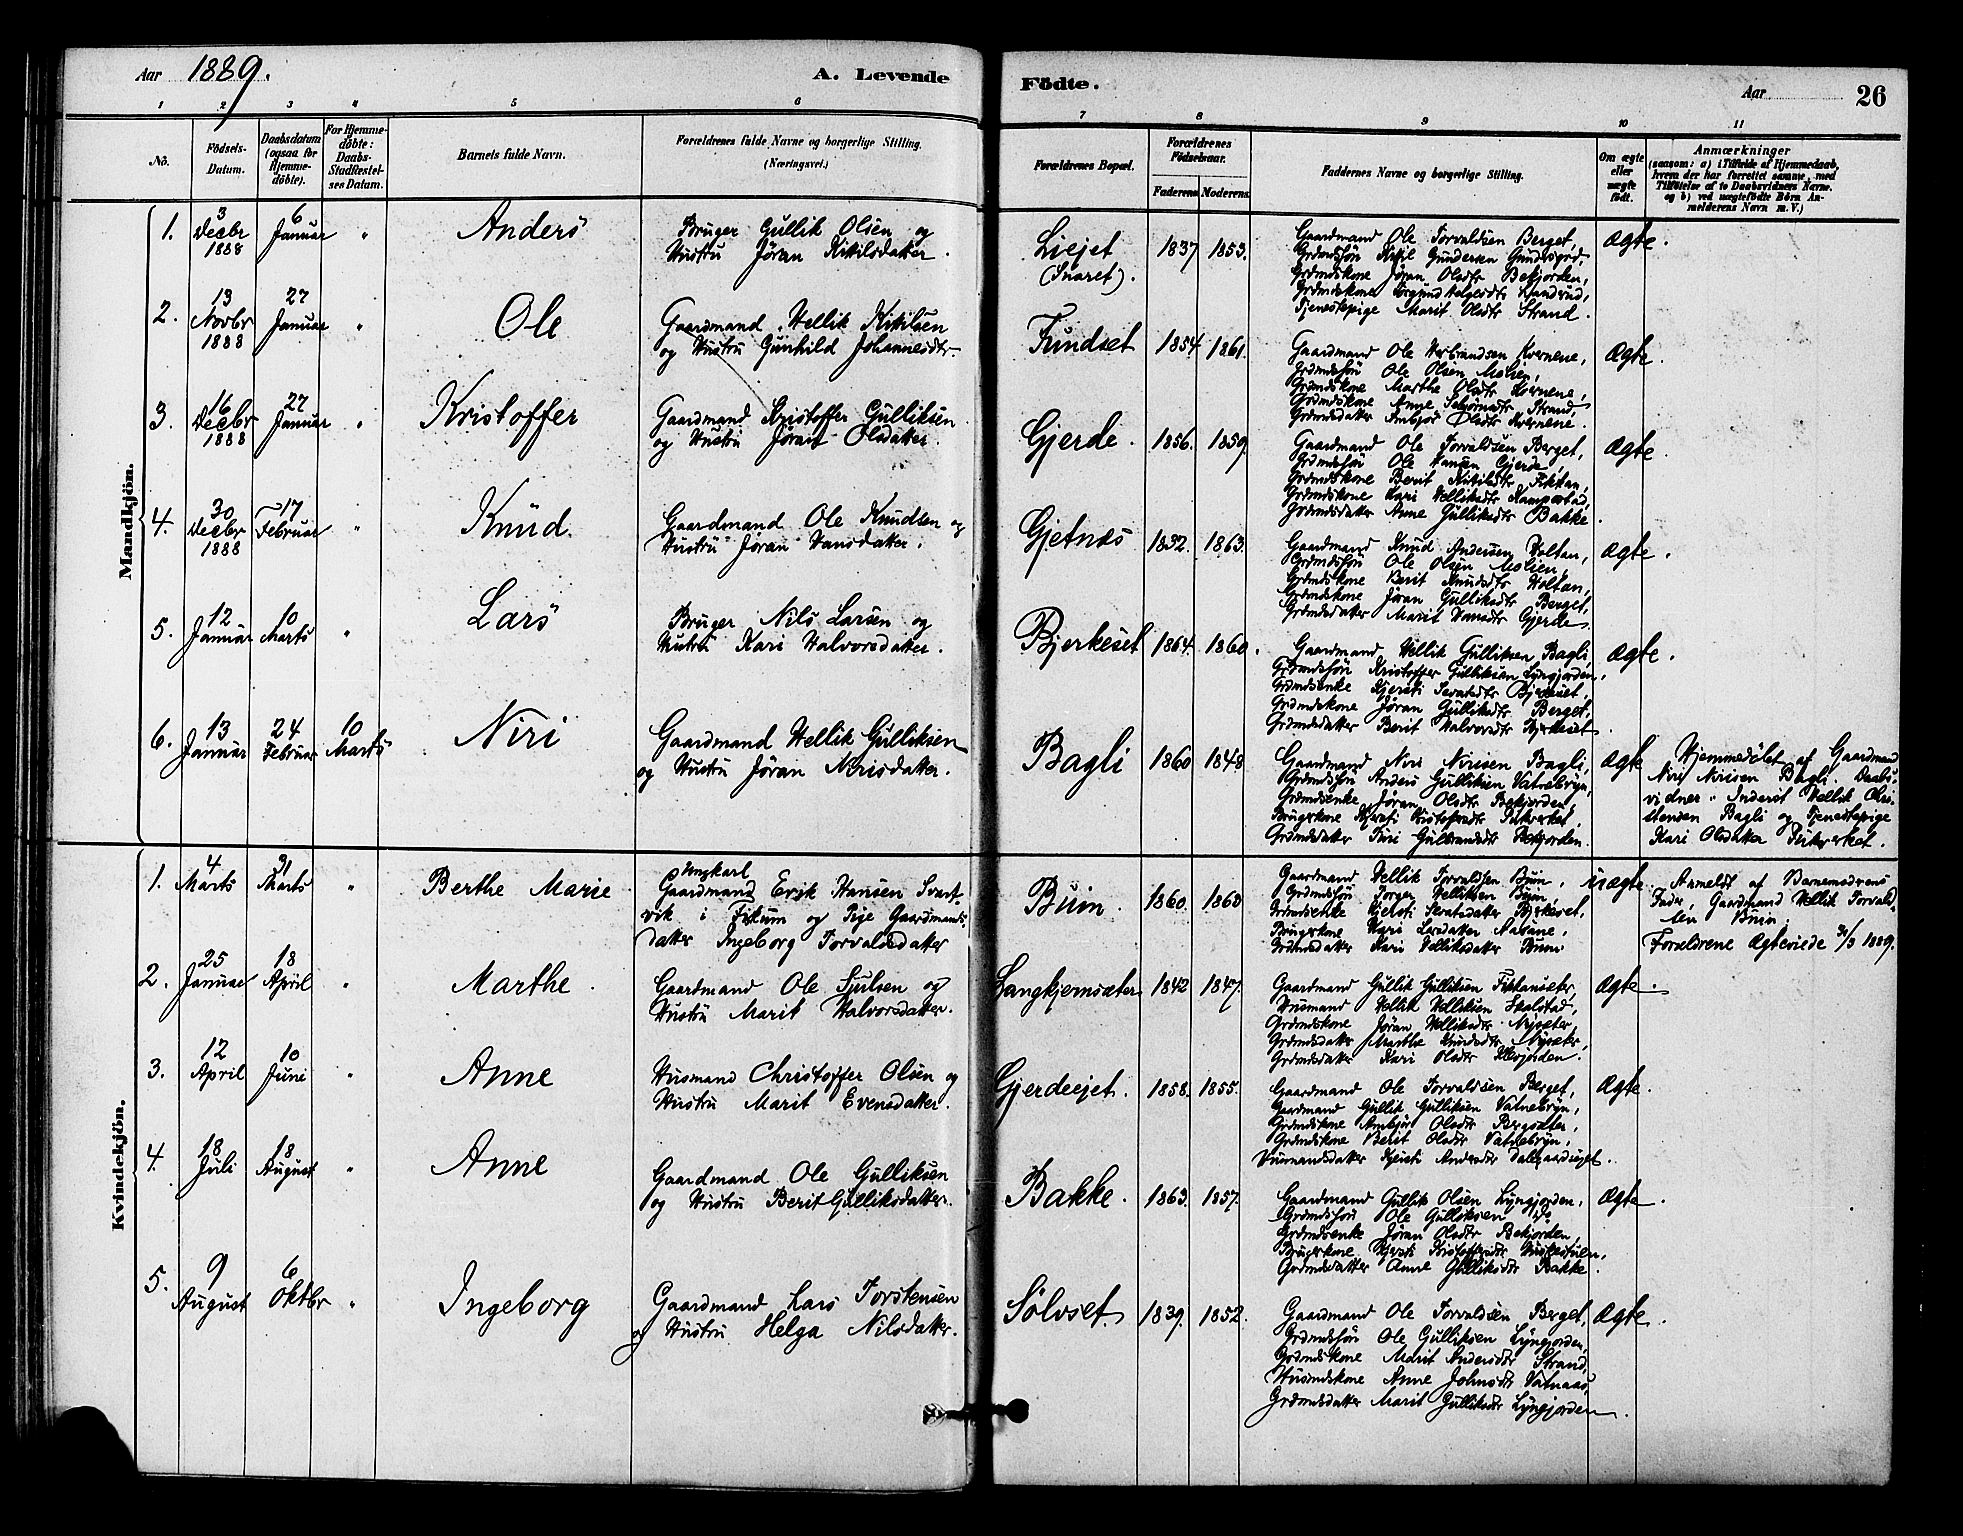 Aar 1889. A. Levende Födte. Aar 26
1 2 3 4 5 6 7 8 9 10 11
No. Födsels-Datum. Daabsdatum (ogsaa for Hjemmedöbte). For Hjemmedöbte: Daabs-Stadfæstelses Datum. Barnets fulde Navn. Forældrenes fulde Navne og borgerlige Stilling. (Næringsvei.) Forældrenes Bopæl. Forældrenes Födselsaar. Faderens Moderens. Faddernes Navne og borgerlige Stilling. Om ægte eller uægte født. Anmærkninger (saasom: a) i Tilfælde af Hjemmedaab, hvem der har forrettet samme, med Tilføielse af to Daabsvidners Navne, og b) ved uægtefødte Börn Anmelderens Navn m. V.)
Mandkjön.
1. 3 Decbr 1888 6 Januar " Anders
Bruger Gullik Olsen og
Hustru Jöran Kittilsdatter.
Liejet (Snaret). 1837 1853.
Gaardmand Ole Torvaldsen Berget,
Grdmdsön Kittil Gundersen
Grdmdskone Jöran Olsdtr Bekjorden,
Grdmdskone
Tjenestepige Marit Olsdtr Strand.
Ægte.
2. 13 Novbr 1888 27 Januar " Ole
Gaardmand Hellik Kittilsen
og Hustru Gunhild Johannesdtr.
Fundset 1854 1861.
Gaardmand Ole Herbrandsen Kvernene,
Grdmdsön Ole Olsen Moen,
Grdmdskone Marthe Olsdtr Kvernene,
Grdmdskone Anne Strand,
Grdmdsdatter Ambjör Olsdtr Kvernene.
Ægte.
3. 16 Decbr 1888 27 Januar " Kristoffer
Gaardmand Kristoffer Gulliksen
og Hustru Jöran Olsdatter.
Gjerde. 1856. 1859.
Gaardmand Ole Torvaldsen Berget,
Grdmdsön Ole Hansen Gjerde,
Grdmdskone Berit Kittilsdtr
Grdmdskone Kari Helliksdtr Kampestad,
Grdmdsdatter Anne Gulliksdtr Bakke.
Ægte.
4. 30 Decbr 1888 17 Februar " Knud.
Gaardmand Ole Knudsen og
Hustru Jöran Hansdatter.
Gjetnæs 1832. 1863.
Gaardmand Knud Andersen Holtan,
Grdmdsön Ole Olsen Moen,
Grdmdskone Berit Knudsdtr Holtan,
Grdmdskone Jöran Gulliksdtr Berget,
Grdmdsdatter Marit Hansdtr Gjerde.
Ægte.
5. 12 Januar 10 Marts " Lars
Bruger Nils Larsen og
Hustru Kari Halvorsdatter.
Bjerkeset 1864. 1860.
Gaardmand Hellik Gulliksen Bagli,
Grdmdsön Kristoffer Gulliksen Lyngjorden,
Grdmdsenke Kjersti Bjerkeset,
Grdmdskone Jöran Gulliksdtr Berget,
Grdmdsdatter Berit Halvorsdtr Bjerkeset.
Ægte.
6. 13 Januar 24 Februar 10 Marts Niri
Gaardmand Hellik Gulliksen
og Hustru Jöran Nirisdatter.
Bagli 1860 1848
Gaardmand Niri Nirisen Bagli,
Grdmdsön Anders Gulliksen Vatnebryn,
Grdmdsenke Jöran Olsdtr Bekjorden,
Brugerkone Kjersti Kristoffersdtr
Grdmdsdatter Gulbrandsdtr Bekjorden.
Ægte
Hjemmedöbt af Gaardmand
Niri Nirisen Bagli. Daabs-
vidner: Inderst Hellik Chri-
stensen Bagli og Tjenestepige
Kari Olsdatter
Kvindekjön.
1. 4 Marts 31 Marts " Berthe Marie
Ungkarl
Gaardmand Erik Hansen Svart-
vik i Fikum og Pige Gaardmands-
datter Ingeborg Torvaldsdatter
Buin. 1860. 1860
Gaardmand Hellik Torvaldsen Buin,
Grdmdsön Torger Helliksen Buin,
Grdmdsenke Kjersti Bjerkeset,
Brugerkone Kari Larsdatter
Grdmdsdatter Kari Helliksdatter Buin
Uægte.
Anmeldt af Barnemoderens
Fader, Gaardmand Hellik Torvald-
sen Buin.
Forældrene Ægteviede 31/3 1889.
2. 25 Januar 18 April " Marthe.
Gaardmand Ole Sjulsen og
Hustru Marit Halvorsdatter.
Langkjernsæter. 1842 1847.
Gaardmand Gullik Gulliksen
Husmand Hellik Helliksen Skalstad,
Grdmdskone Jöran Helliksdtr Nysæter,
Grdmdsdatter Marthe Knudsdtr Nysæter,
Grdmdsdatter Kari Olsdtr
Ægte.
3. 12 April 10 Juni " Anne
Husmand Christoffer Olsen og
Hustru Marit Evensdatter.
Gjerdeejet. 1858. 1855.
Gaardmand Ole Torvaldsen Berget,
Gaardmand Gullik Gulliksen Vatnebryn,
Grdmdskone Ambjör Olsdtr Bergsæter,
Grdmdskone Berit Olsdtr Vatnebryn,
Husmandsdatter Kjersti Andersdtr
Ægte.
4. 18 Juli 18 August " Anne
Gaardmand Ole Gulliksen
og Hustru Berit Gulliksdatter.
Bakke. 1863. 1857.
Gaardmand Gullik Olsen Lyngjorden,
Grdmdsön Ole Gulliksen do
Grdmdsenke Jöran Olsdtr Bekjorden,
Brugerkone Kjersti Kristoffersdtr
Grdmdsdatter Anne Gulliksdtr Bakke.
Ægte.
5. 9 August 6 Oktbr " Ingeborg
Gaardmand Lars Torstensen
og Hustru Helga Nilsdatter.
Sölvset 1839. 1852.
Gaardmand Ole Torvaldsen Berget,
Grdmdsön Ole Gulliksen Lyngjorden,
Grdmdskone Marit Andersdtr Strand,
Husmdskone Anne Johnsdtr Vatnaas,
Grdmdsdatter Marit Gulliksdtr Lyngjorden.
Ægte.